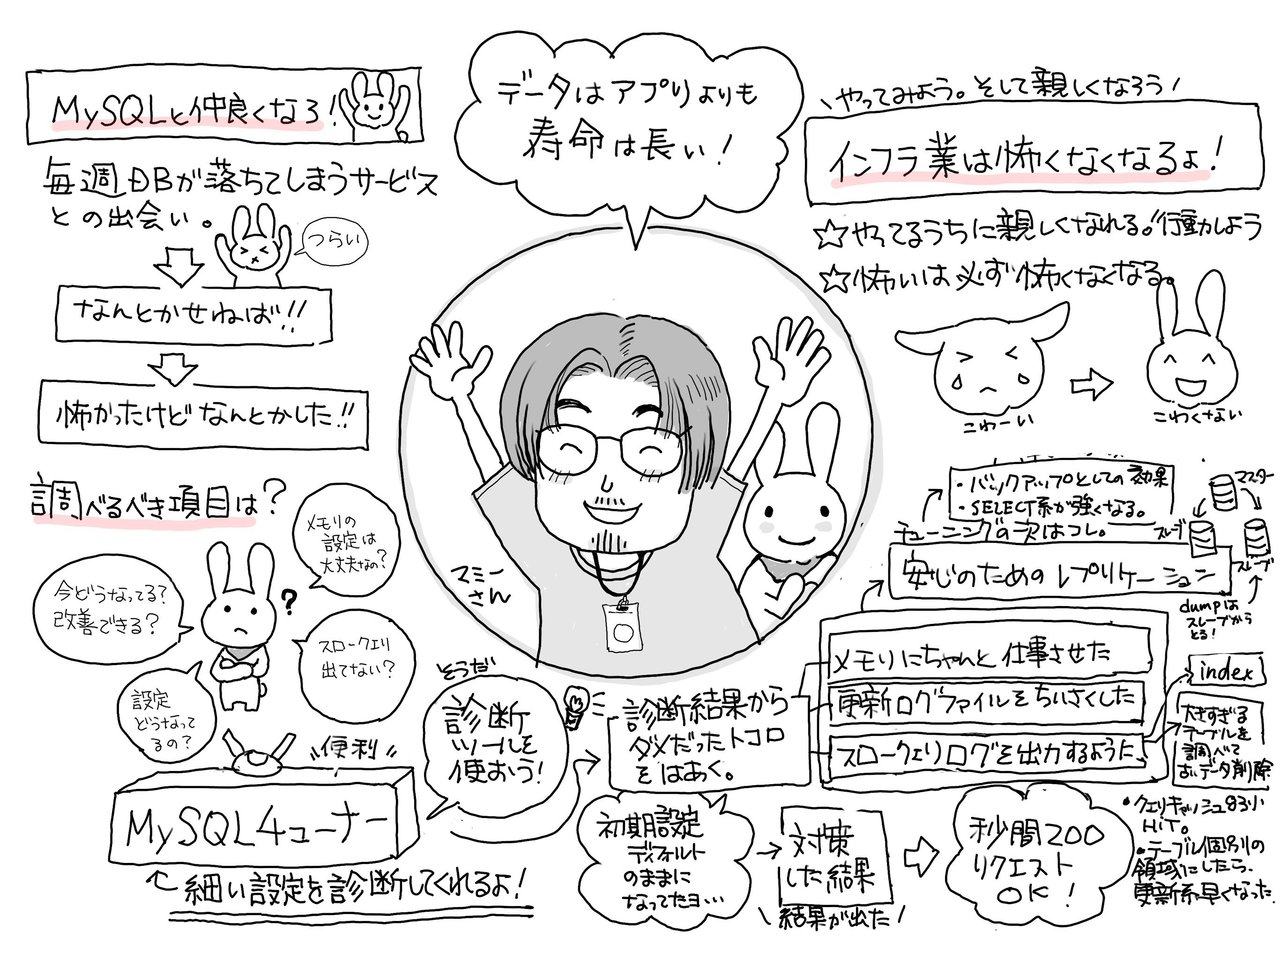 MySQLと仲良くなろ!
毎週DBが落ちてしまうサービス
との出会い。
つらい
なんとかせねば!!
怖かったけどなんとかした!!
調べるべき項目は?
メモリの
設定は
大丈夫なの?
今どうなってる?
改善できる?
?
スロークエリ
出てない?
設定
どうなって
るの?
便利
MySQLチューナー
細い設定を診断してくれるよ!
データはアプリよりも
寿命は長い!
マミー
さん
そうだ
診断
ツールを
使おう!
診断結果から
ダメだったトコロ
をはあく。
初期設定
ディフォルト
のままに
なってたヨ…
対策
した結果
結果が出た!
秒間200
リクエスト
OK!
やってみよう。そして親しくなろう!
インフラ業は怖くなくなるよ!
☆やってるうちに親しくなれる。!!行動しよう
☆怖いは必ず怖くなくなる。
こわーい
こわくない
・バックアップとしての効果
・SELECT系が強くなる。
チューニングの次はコレ。
安心のためのレプリケーション
マスター
スレーブ
スレーブ
dumpは
スレーブから
とる!
メモリにちゃんと仕事させた
更新ログファイルをちいさくした
スロークエリログを出力するように
index
大きすぎる
テーブルを
調べて
古いデータ削除
・クエリキャッシュ83%
HiT。
・テーブル個別の
領域にしたら、
更新系早くなった。